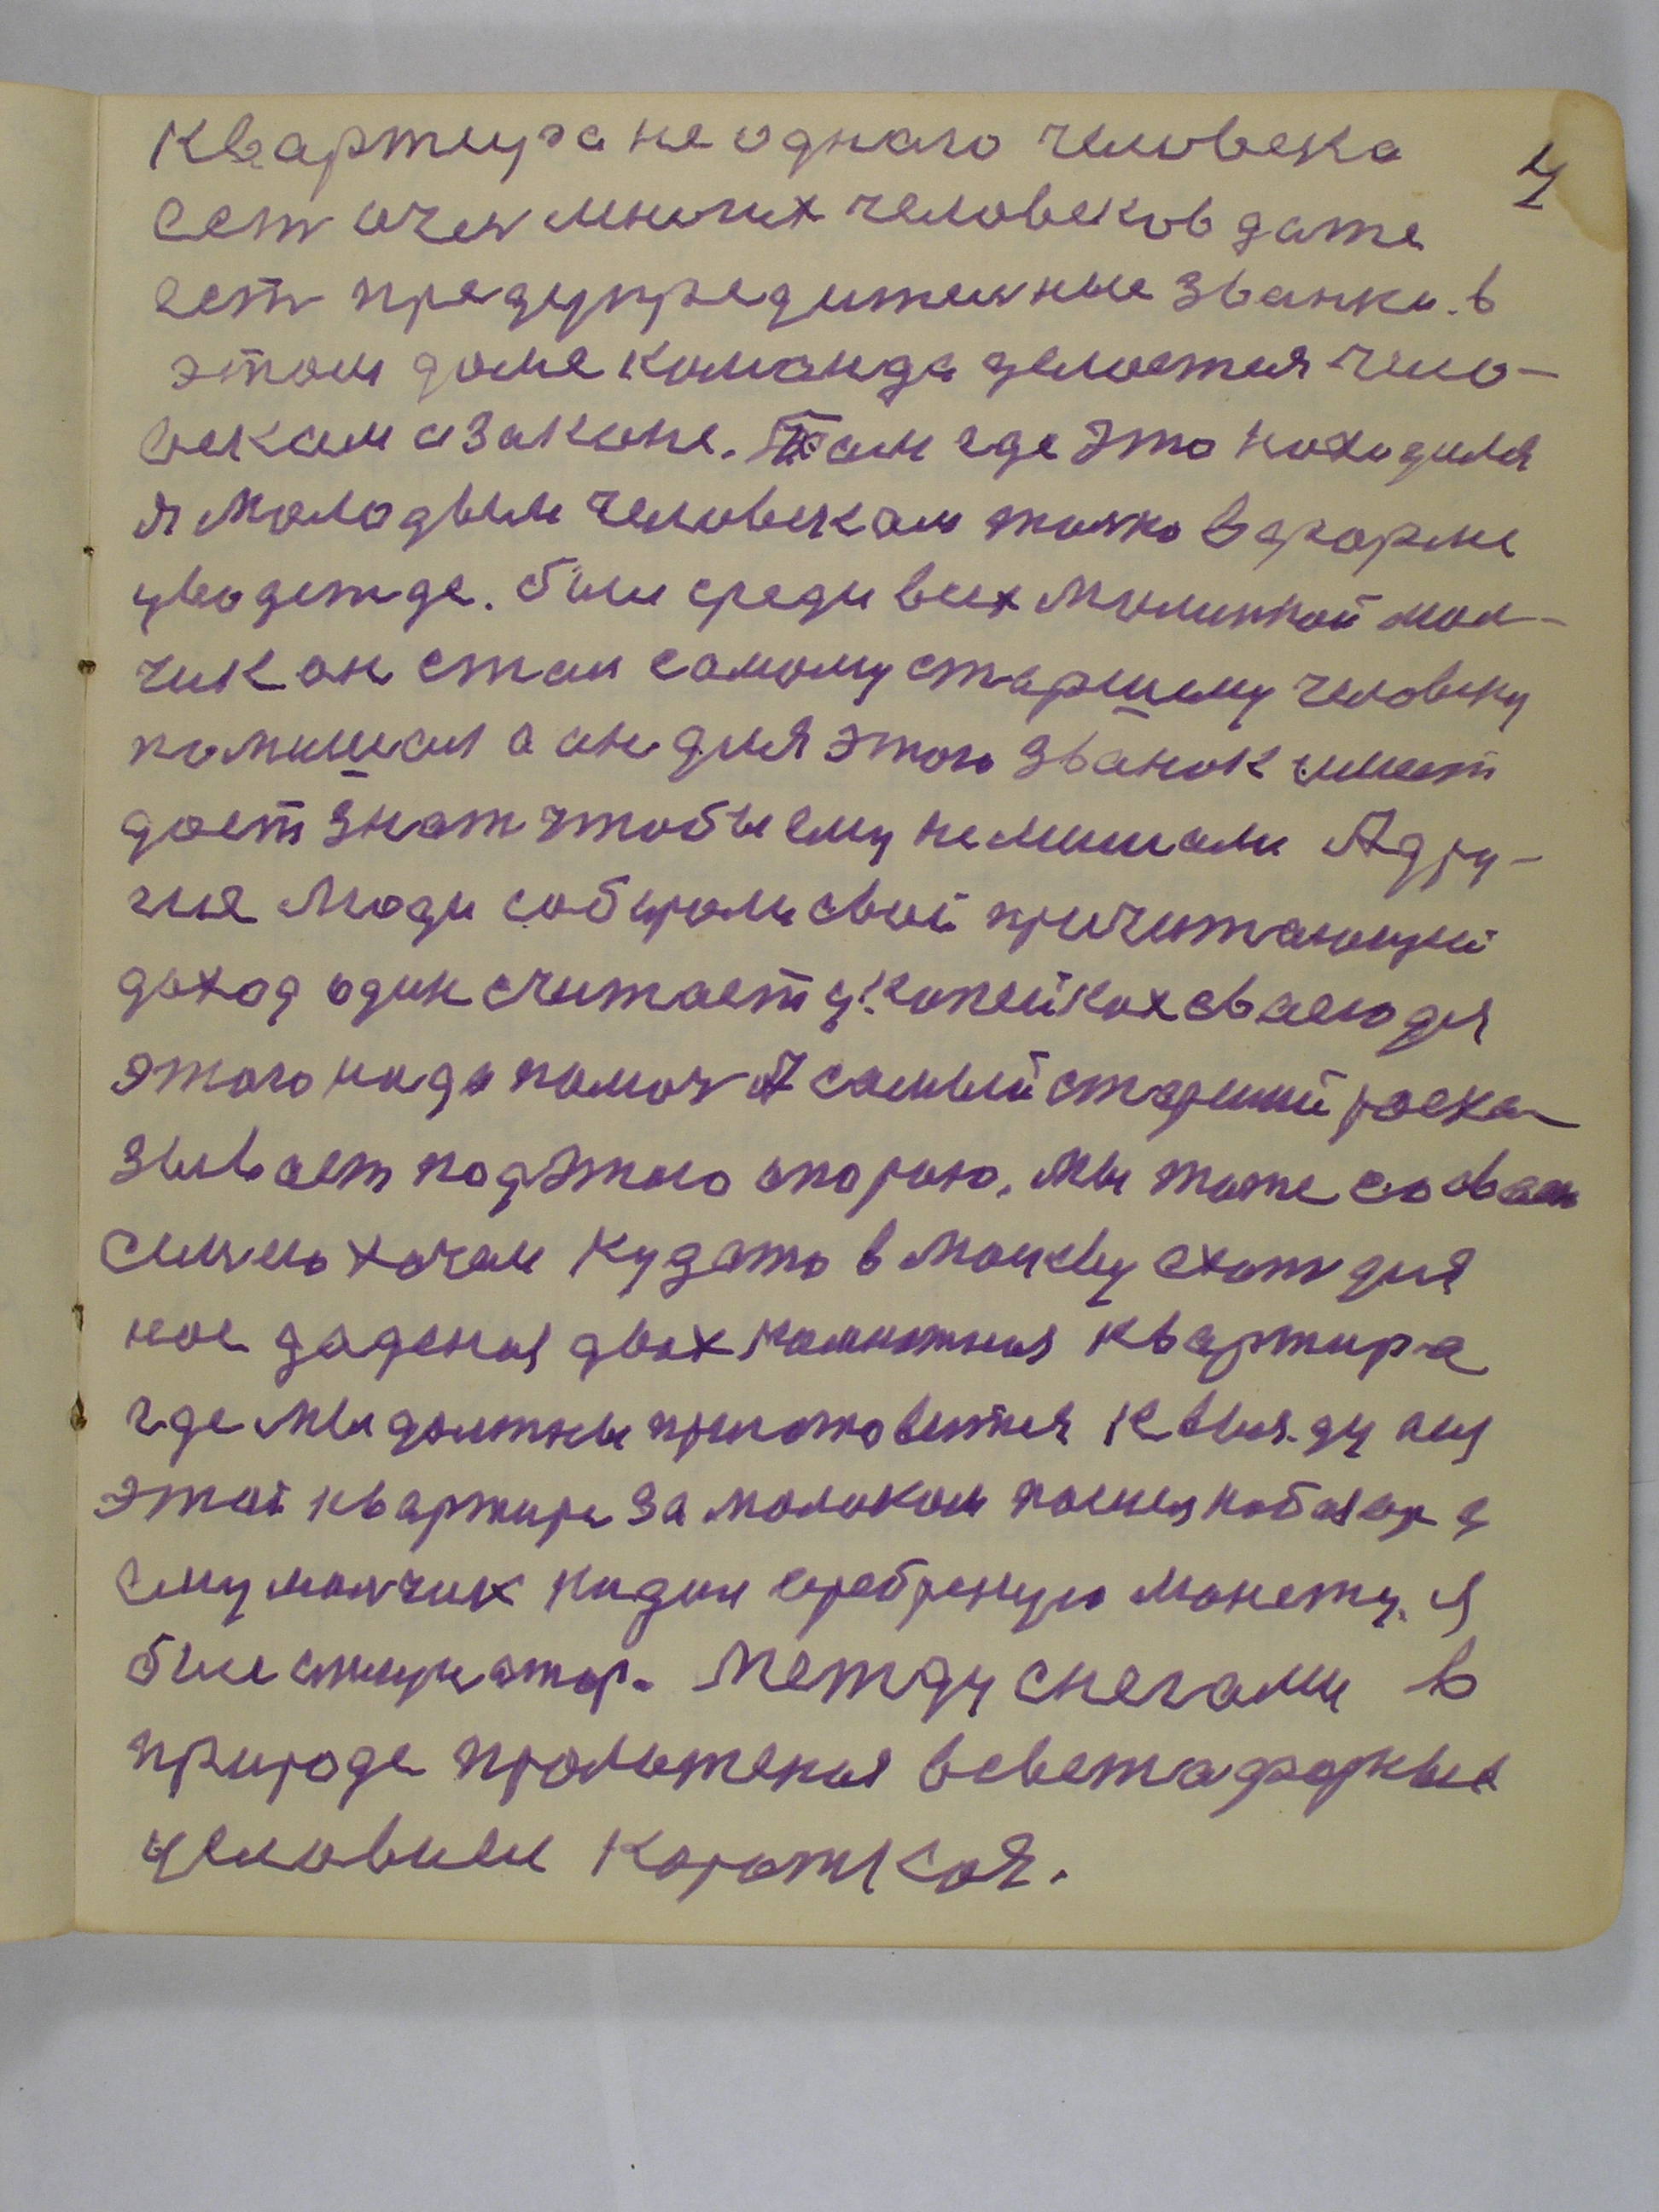 Квартира не однаго человека 4
ест очен многих человеков даже
ест предупредителные званки. в
этом доме команда делается чело-
векам а законе. Там где это находился
я молодым человекам толко в форме
у водежде. был среди всех маликой мал-
чик он стал самому старшему человеку
помишал а он для этого званок имеет
дает знат чтобы ему не мишали А дру-
гие люди собирали свой причитающий
доход один считает у копейках сваею для
этого надо помоч А самый старший раска-
зывает под этаю апораю. Мы тоже со сваем
силно хочем кудато в Москву ехат для
нас даденая двах комнотная квартира
где мы должны приготовится к выезду из
этой квартиры за молоком пошел на базар а
ему малчик кидал серебреную монету. Я
был
Между снегами в
природе проложеная
условием кароткая.